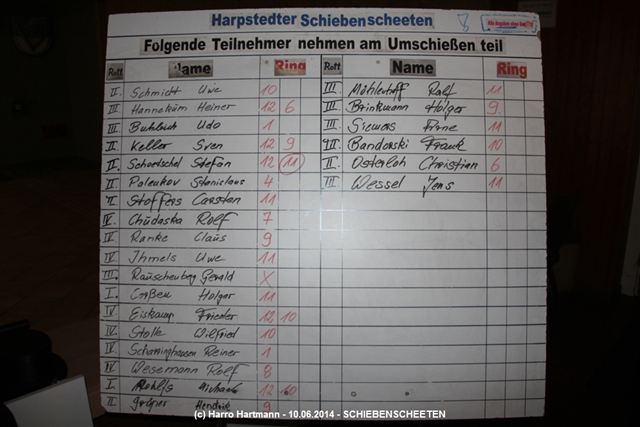 Harpstedter Schiebenscheeten
Folgende Teilnehmer nehmen am Umschießen teil
Rott Name Ring
II. Schmidt Uwe 10
III. Hanneküm Heiner 12 6
III. Udo 1
II. Keller Sven 12 9
II. Schoetschel Stefan 12 11
II Polenkov Stanislaus 4
Stoffers Carsten 11
IV. Chudaska Rolf 7
IV Ranke Claus 9
IV. Jhmels Uwe 11
III. Rauschenberg Gerald X
I. Holger 11
IV. Eiskamp Frieder 12 10
IV. Stolle Wilfried 10
IV Scharringhausen Reiner 1
IV Wesemann Rolf 8
I. Rohlfs Michael 12
II Hendrik 9
Rott Name Ring
III. Rolf 11
III. Brinkmann Holger 9
III. Siemers Arne 11
III. Bandorski Frank 10
II. Osterloh Christian 6
III. Wessel Jens 11
(c) Harro Hartmann - 10.06.2014 - SCHIEBENSCHEETEN